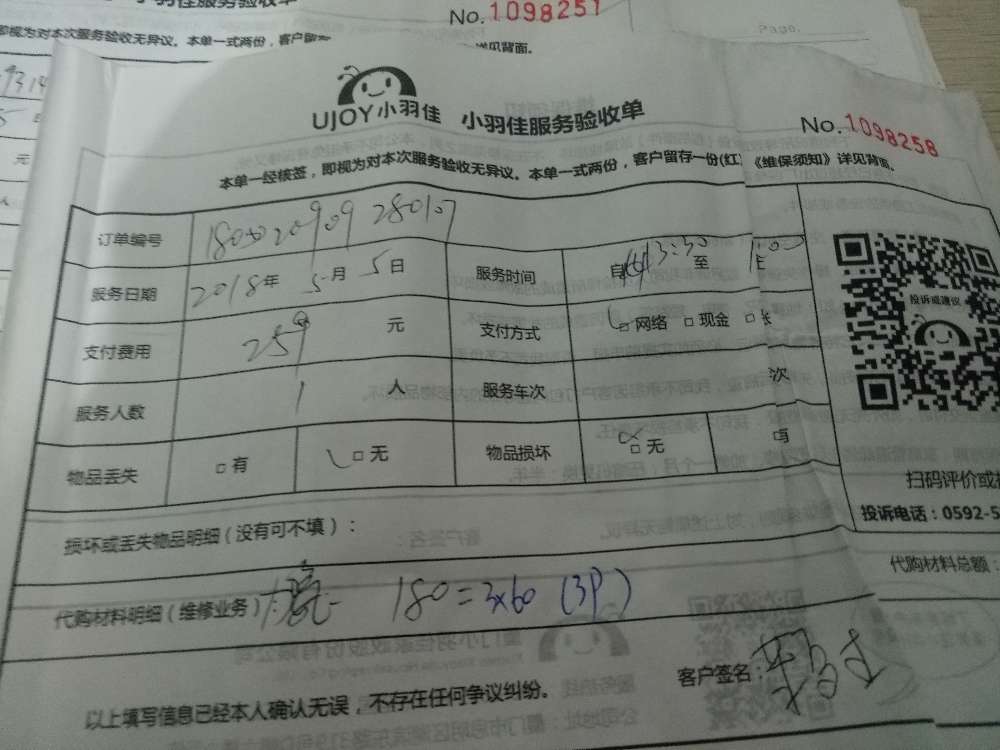 小羽佳服务验收单
No.1098251
即视为对本次服务验收无异议。本单一式两份，客户留存
详见背面。
Page.
UJOY小羽佳 小羽佳服务验收单
No.1098258
本单一经核签，即视为对本次服务验收无异议。本单一式两份，客户留存一份(红)《维保须知》详见背面。
订单编号
服务日期 2018年 5月 5日 服务时间 13:30 至
支付费用 259 元 支付方式 □网络 □现金 □
服务人数 1 人 服务车次 次
物品丢失 □有 □无 物品损坏 □无 □有
投诉或建议
扫码评价或
投诉电话：0592-5
损坏或丢失物品明细（没有可不填）：
代购材料总额：
代购材料明细（维修业务） 180=3×60 (3P)
客户签名：
以上填写信息已经本人确认无误，不存在任何争议纠纷。